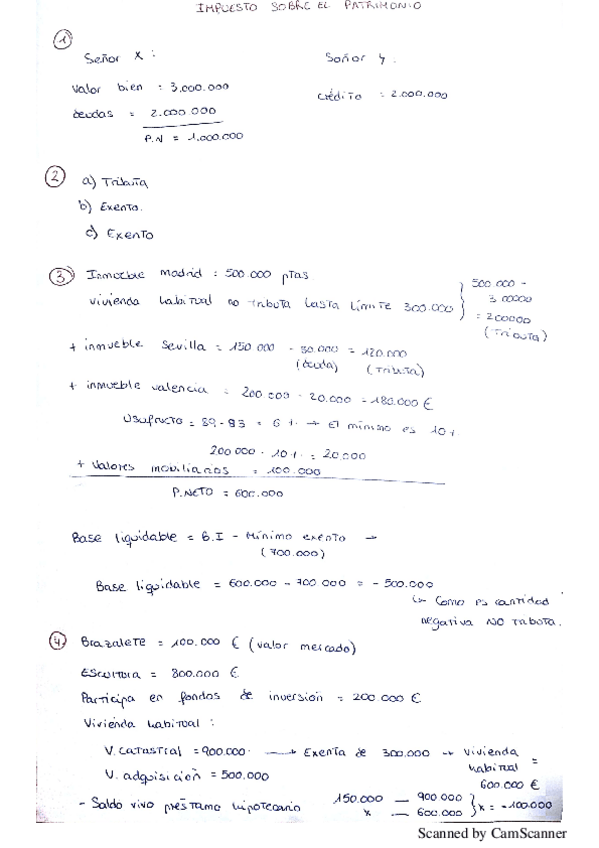 IMPUESTO SOBRE EL PATRIMONIO
1
Señor X :
Señor Y :
Valor bien : 3.000.000
deudas = 2.000.000
P.N = 1.000.000
crédito : 2.000.000
2
a) Tributa
b) Exento.
c) Exento
3 Inmueble Madrid : 500.000 ptas.
vivienda habitual no tributa hasta límite 300.000
500.000 -
300000
= 200000
(Tributa)
+ inmueble Sevilla = 150.000 - 30.000 = 120.000
(deuda) (Tributa)
+ inmueble valencia = 200.000 - 20.000 = 180.000 €
Usufructo = 89 - 83 = 6 % → El mínimo es 10 %
200.000 · 10 % = 20.000
+ Valores mobiliarios = 100.000
P.NETO = 600.000
Base liquidable = B.I - Mínimo exento →
(700.000)
Base liquidable = 600.000 - 700.000 = - 500.000
↳ Como es cantidad
negativa NO tributa.
4 Brazalete = 100.000 € (valor mercado)
Escultura = 800.000 €
Participa en fondos de inversión = 200.000 €
Vivienda habitual :
V. Catastral = 900.000 → Exenta de 300.000 → Vivienda
habitual =
600.000 €
V. adquisición = 500.000
- Saldo vivo préstamo hipotecario
150.000 — 900.000
x — 600.000
x = -100.000
Scanned by CamScanner